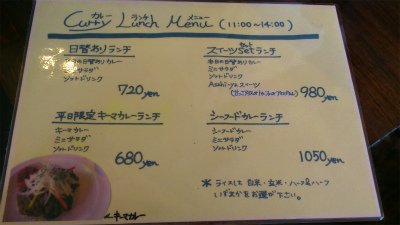 カレー ランチ メニュー
Curry Lunch Menu (11:00~14:00)
日替わりランチ
本日の日替わりカレー
ミニサラダ
ソフトドリンク
720yen
スイーツSetランチ
本日の日替わりカレー
ミニサラダ
ソフトドリンク
980yen
平日限定キーマカレーランチ
キーマカレー
ミニサラダ
ソフトドリンク
680yen
シーフードカレーランチ
シーフードカレー
ミニサラダ
ソフトドリンク
1050yen
＊ライスは白米・玄米・ハーフ&ハーフ
いずれかをお選び下さい。
キーマカレー